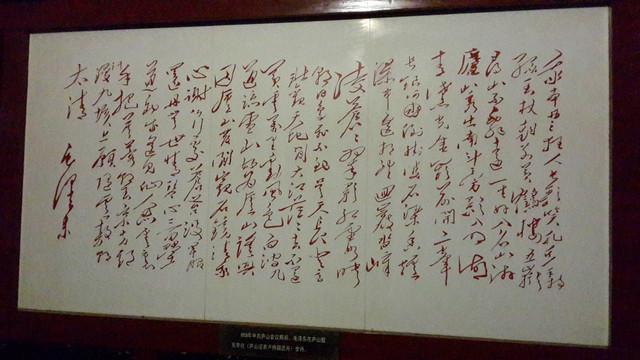 我本楚狂人凤歌笑孔丘手持
绿玉杖朝别黄鹤楼五岳
寻仙不辞远一生好入名山游
庐山秀出南斗旁影落明湖
青黛光金阙前开二峰
长银河倒挂三石梁香炉
瀑布遥相望回崖沓嶂
凌苍苍翠影红霞映
朝日鸟飞不到吴天长登高
壮观天地间大江茫茫去不还
黄云万里动风色白波九
道流雪山好为庐山谣兴
因庐山发闲窥石镜清我
心谢公行处苍苔没早服
还丹无世情琴心三叠
道初成遥见仙人彩云里
手把芙蓉朝玉京先期汗
漫九垓上愿接卢敖游
太清 毛泽东
1959年中共庐山会议期间，毛泽东在庐山
《庐山谣寄卢侍御虚舟》